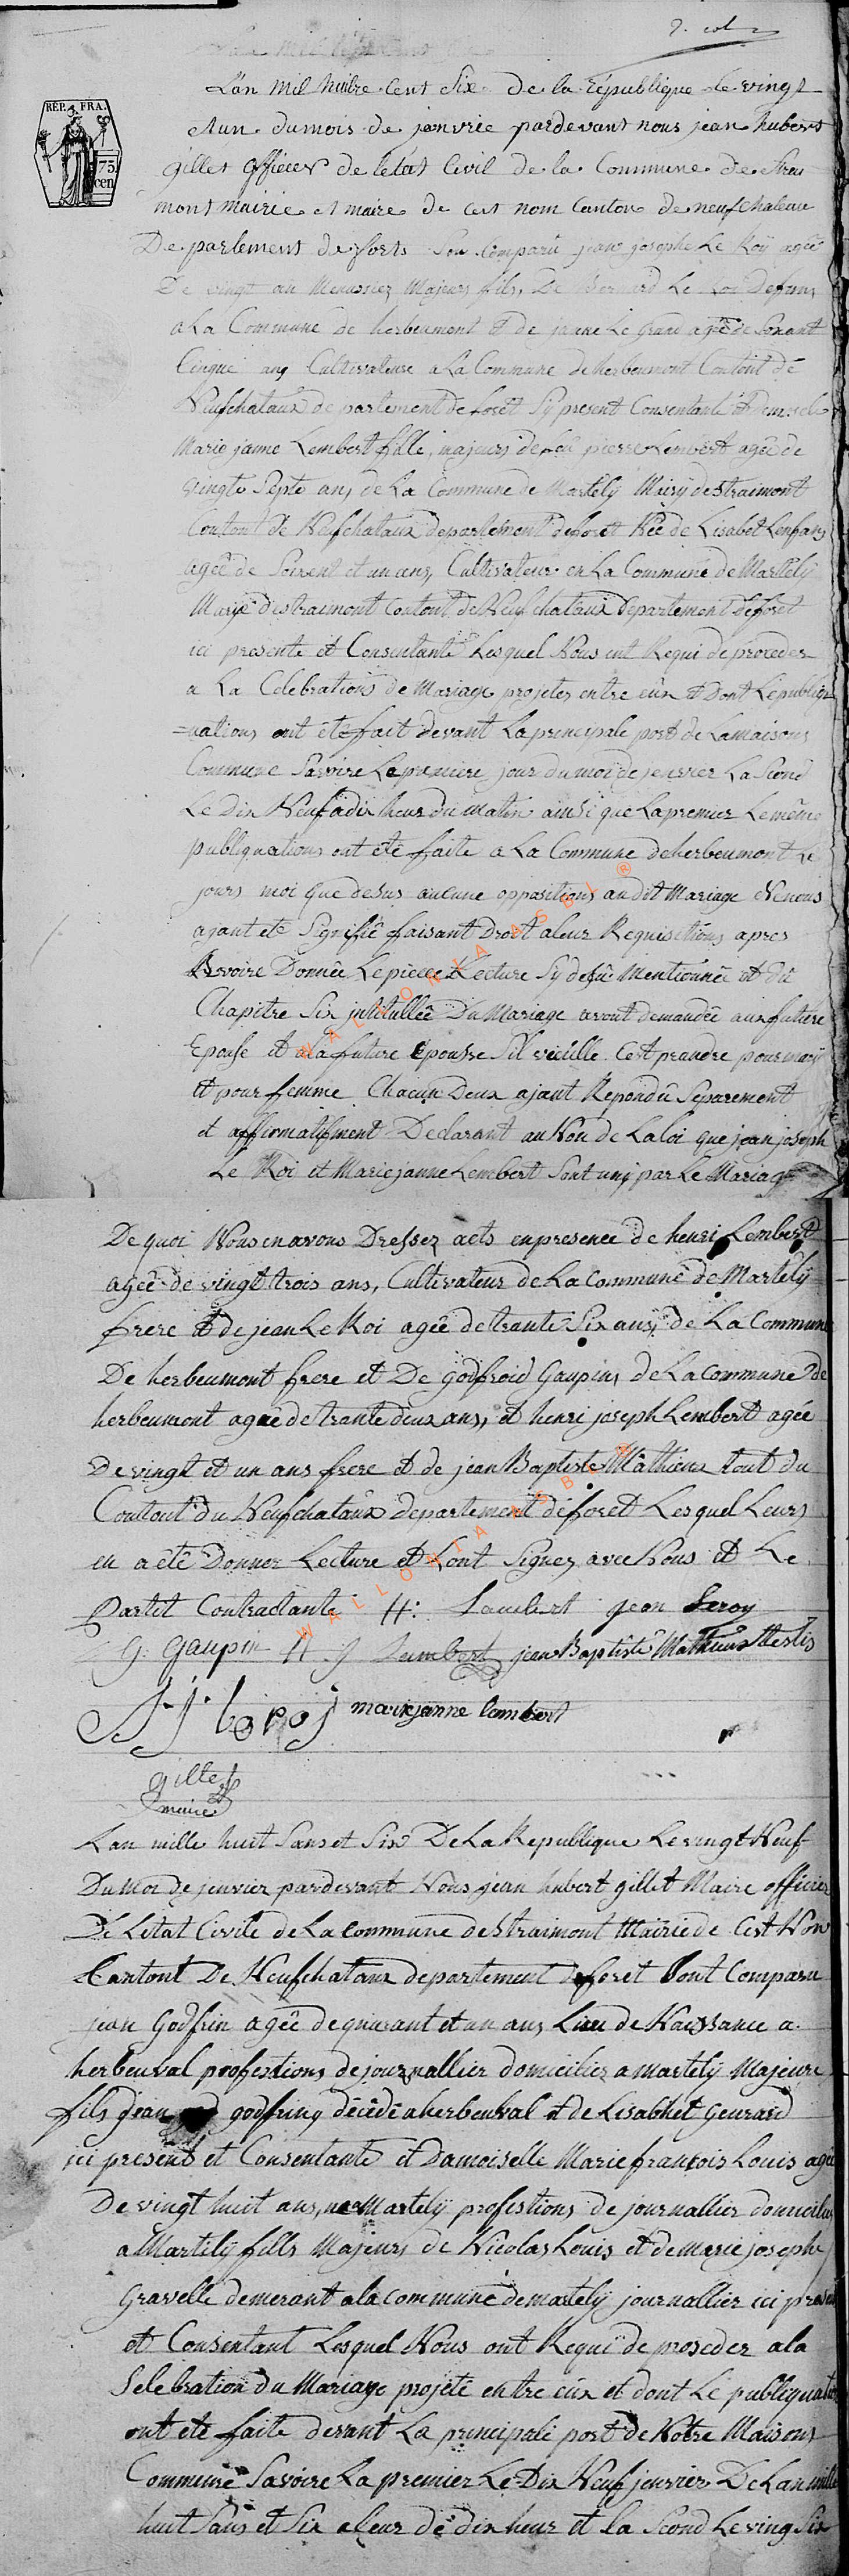 2. rol
REP. FRA.
75
cen
L'an mil huitre cent Six de la république le vingt
et un du mois de janvrie pardevant nous jean hubert
gillet officier de letat Civil de la Commune de strai
mont mairie et maire de cest nom Canton de neufchateau
De parlement de forts Son Comparû jean josephe Le Roÿ ageê
De vingt an Menusiez Majeurs fils, De Bernard Le Roi Defunt
a La Commune de herbeumont et de janne Le Grand ageê de Soixant
Cinque ans Cultivateure a La Commune de herbeumont Contont de
Neufchataux de partement de foret Sÿ present Consentante et demoiselle
Marie janne Lembert fille, majeurs de feû pierre Lembert ageê de
vingte Septe ans de La Commune de Martelÿ Mairÿ de straimont
Contont de Neufchataux departement de foret Neê de Lisabet Lenfans
ageê de Soixent et un ans, Cultivateur en La Commune de Martelÿ
Marie destraimont Contont de Neufchataux departement de foret
ici presente et Consentante Lesquel Nous ont Requi de proceder
a La Celebrations de Mariage projetes entre eûx et Dont Le publiqu
=uations ont êtê fait devant La principale port de La maisons
Commune Savoire La premiere jour du moi de jenvier La Scond
Le Dix Neuf a dix heur du Matin ainsi que La premier Le même
publiquations ont etê faite a La Commune de herbeumont Le
jours moi que desus aucune oppositions audit Mariage Ne nous
ajant etê Signifiê faisant Droit a leur Requisitions apres
Avoire Donnêe Le pieces Lecture Sÿ desû Mentionnêe et du
Chapitre Six jntitullêe Du Mariage avont demandêe aux future
Epouse et a la future Epouse Sil veuille Cest prandre pour mari
et pour femme Chacun Deux ajant Repondû Separement
et affirmatifment Declarant au Non de La loi que jean joseph
Le Roi et Marie janne Lembert Sont unj par Le Mariage
De quoi Nous en avons Dressez acts enpresence de henri Lembert
ageê de vingt trois ans, Cultivateur de La Commune de Martelÿ
frere et de jean Le Roi ageê de trante Six ans, de La Commune
De herbeumont frere et De Godfroid Gaupin, de La Commune de
herbeumont ageê de trante deux ans, et henri joseph Lembert ageê
De vingt et un ans frere et de jean Baptiste Mathieux tout du
Contont du Neufchataux departement de foret Lesquel Leurs
en a êtê Donner Lecture et Lont Signez avec Nous et Le
Partit Contractante H: Lambert jean Leroy
G: Gaupin H J Lambert jean Baptiste Mathieux Testis
J j leroj marie janne lambert
Gillet
maire
L an mille huit Sans et Six De La Republique Le vingt Neuf
Du Moi de jenvier pardevant Nous jean hubert gillet Maire officier
De Letat Civile de La Commune de straimont Mairie de Cest Non
Cantont De Neufchataux departement de foret Sont Comparu
jean Godfrin ageê de quarant et un ans Lieu de Naissance a
herbeuval profestions de journallier domiciliez a martelÿ Majeure
fils jean godfring dêcêdê a herbeuval et de Lisabhet Geurard
ici present et Consentante et Damoiselle Marie francois Louis ageê
De vingt huit ans, nee Martelÿ profestions de journallier domicilies
a Martelÿ fills Majeurs de Nicolas Louis et de marie josephe
Gravelle demerant a la commune de martelÿ journallier ici presen
et Consentant Lesquel Nous ont Requi de proseder a la
Selebration du Mariage projetê entre eûx et dont Le publiquatio
ont etê faite devant La principali port de Notre Maisons
Commune Savoire La premier Le Dix Neuf jenvier De Lan mille
huit Sans et Six a leur de dix heur et la Scond Le ving Six
WALLONIA ASBL ®
WALLONIA ASBL